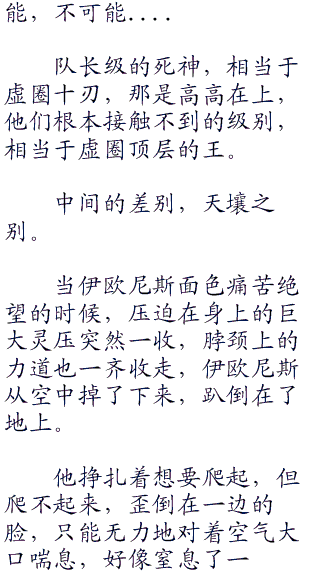 能，不可能....
队长级的死神，相当于
虚圈十刃，那是高高在上，
他们根本接触不到的级别，
相当于虚圈顶层的王。
中间的差别，天壤之
别。
当伊欧尼斯面色痛苦绝
望的时候，压迫在身上的巨
大灵压突然一收，脖颈上的
力道也一齐收走，伊欧尼斯
从空中掉了下来，趴倒在了
地上。
他挣扎着想要爬起，但
爬不起来，歪倒在一边的
脸，只能无力地对着空气大
口喘息，好像窒息了一